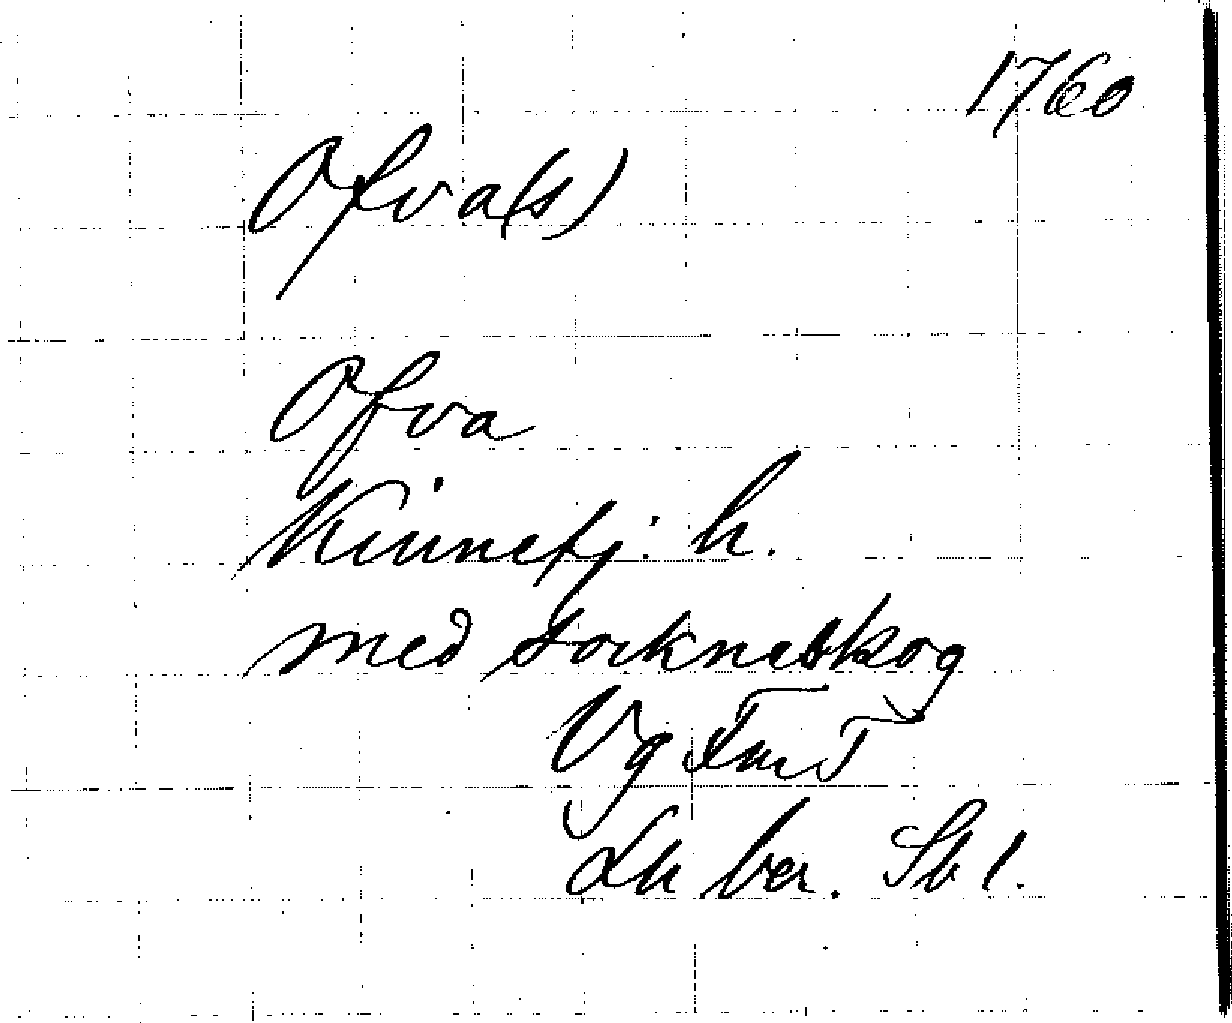 1760
Ofva(s)
Ofva
Kinnefj. h.
med tocknetskog
Vg FmT
Lh ber. Sb 1.